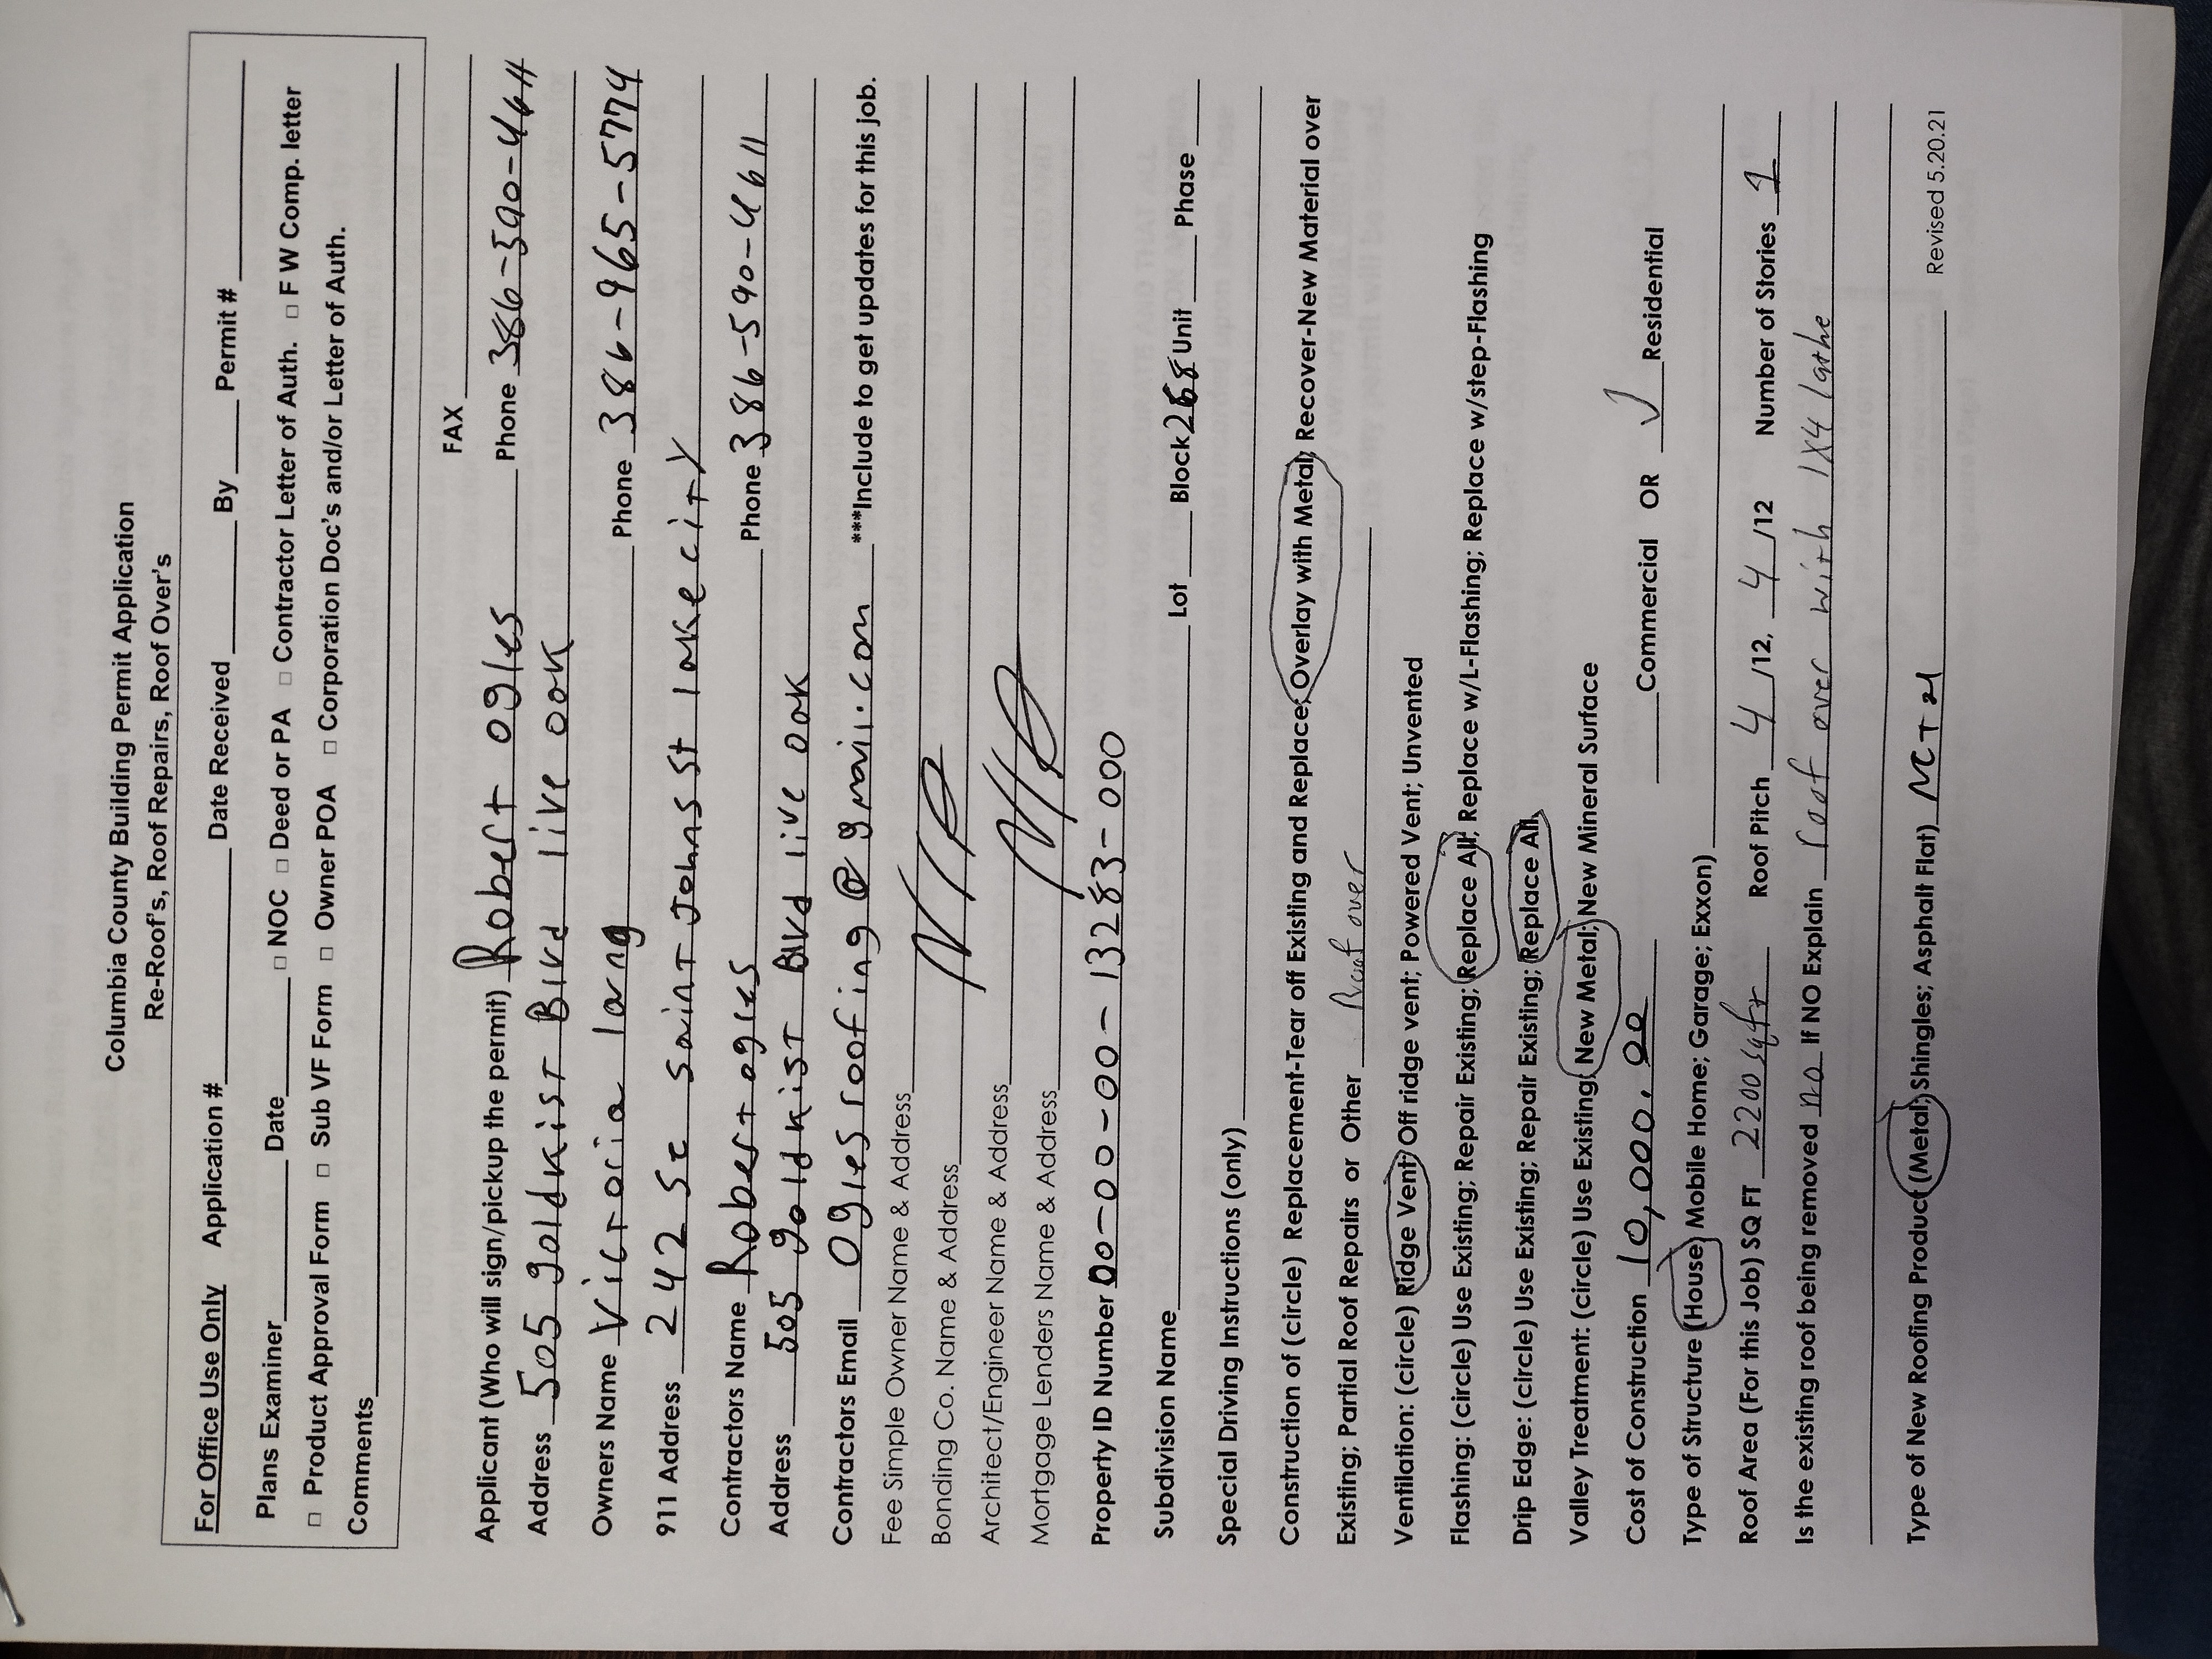 Columbia County Building Permit Application
Re-Roof's, Roof Repairs, Roof Over's
For Office Use Only Application # Date Received By Permit #
Plans Examiner Date □ NOC □ Deed or PA □ Contractor Letter of Auth. □ F W Comp. letter
□ Product Approval Form □ Sub VF Form □ Owner POA □ Corporation Doc's and/or Letter of Auth.
Comments
FAX
Applicant (Who will sign/pickup the permit) Robert ogles Phone 386-590-4611
Address 505 goldkist Blvd live oak
Owners Name Victoria lang Phone 386-965-5774
911 Address 242 Se saint Johns st lake city
Contractors Name Robert ogles Phone 386-590-4611
Address 505 goldkist Blvd live oak
Contractors Email oglesroofing@gmail.com ***Include to get updates for this job.
Fee Simple Owner Name & Address
Bonding Co. Name & Address
Architect/Engineer Name & Address
Mortgage Lenders Name & Address
Property ID Number 00-00-00-13283-000
Subdivision Name Lot Block 268 Unit Phase
Special Driving Instructions (only)
Construction of (circle) Replacement-Tear off Existing and Replace; Overlay with Metal; Recover-New Material over
Existing; Partial Roof Repairs or Other Roof over
Ventilation: (circle) Ridge Vent; Off ridge vent; Powered Vent; Unvented
Flashing: (circle) Use Existing; Repair Existing; Replace All; Replace w/L-Flashing; Replace w/step-Flashing
Drip Edge: (circle) Use Existing; Repair Existing; Replace All
Valley Treatment: (circle) Use Existing; New Metal; New Mineral Surface
Cost of Construction 10,000.00 Commercial OR √ Residential
Type of Structure (House; Mobile Home; Garage; Exxon)
Roof Area (For this Job) SQ FT 2200 sqft Roof Pitch 4 /12, 4 /12 Number of Stories 1
Is the existing roof being removed no If NO Explain roof over with 1X4 lathe
Type of New Roofing Product (Metal; Shingles; Asphalt Flat)
Revised 5.20.21